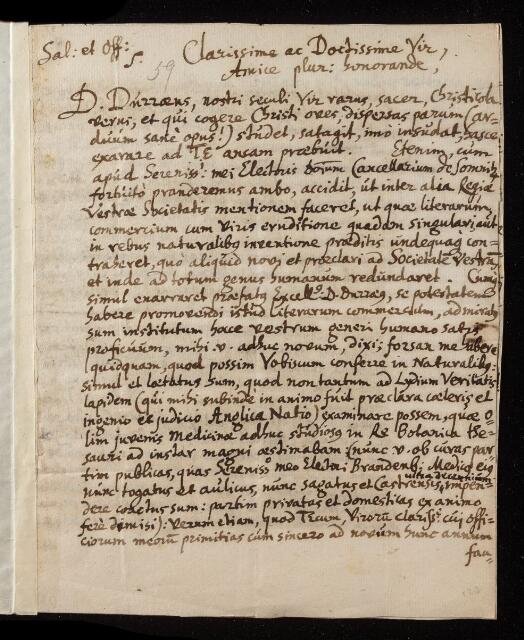 Sal: et Off: f.
59
Clarissime ac Doctissime Vir,
Amice plur: honorande,
D. Durræns, nostri seculi Vir rarus, sacer, Christicola
verus, et qui cogere Christi oves, dispersas parum (ar-
duum sanè opus!) studet, satagit, imo insudat, hasce
exarare ad TE ansam præbuit. Etenim, cum
apud Sereniss: mei Electoris Cancellarium de Somnitz
fortuito pranderemus ambo, accidit, ut inter alia Regiæ
Vestræ Societatis mentionem faceret, ut quæ literarum
commercium cum viris eruditione quadam singulari, aut
in rebus naturalibq inventione præditis undequaq con-
traheret, quo aliquid novi et præclari ad Societatē vestrā
et inde ad totum genus humanum redundaret. Cumq
simul enarraret præfatq Excellq D. Durræq, se potestatem
habere promovendi istud literarum commercium, admiratq
sum institutum hocce vestrum generi humano satis
proficuum, mihi v. adhuc novum, dixi; forsan me habere
quidquam, quod possim Vobiscum conferre in Naturalibq:
simul et lætatus sum, quod non tantum ad Lydium Veritatis
lapidem (qui mihi subinde in animo fuit præclara cæteris et
ingenio et judicio Anglica Natio) examinare possem, quæ o-
lim juvenis Medicinæ adhuc studiosq in Re Botanica the-
sauri ad instar magni æstimabam (nunc v. ob curas par-
tim publicas, quas Sereniss: meo Electori Brandenb: Medicq eiq
nunc togatus et aulicus, nunc sagatus et Castrensis, ultra decennium impen-
dere coactus sum: partim privatas et domesticas ex animo
ferè dimisi): verum etiam, quod Tecum, Virorū clarissē: cui offi-
ciorum meorū primitias cum sincero ad novum hunc annum
fau-